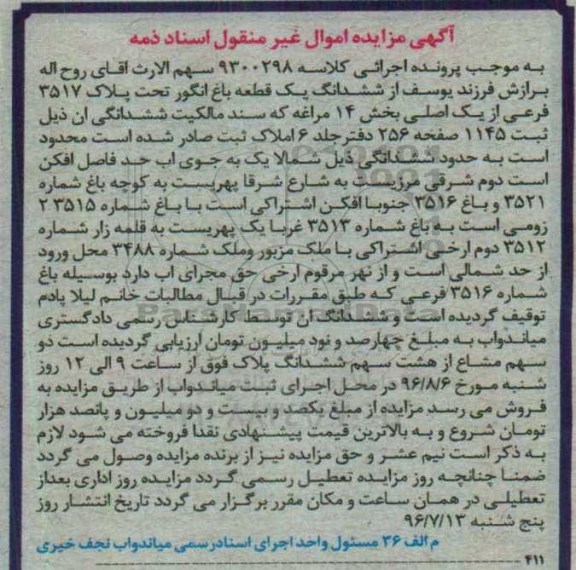 آگهی مزایده اموال غیر منقول اسناد ذمه
به موجب پرونده اجرائی کلاسه ۹۳۰۰۲۹۸ سهم الارث اقای روح اله
برازش فرزند یوسف از ششدانگ یک قطعه باغ انگور تحت پلاک ۳۵۱۷
فرعی از یک اصلی بخش ۱۴ مراغه که سند مالکیت ششدانگی ان ذیل
ثبت ۱۱۴۵ صفحه ۲۵۶ دفتر جلد ۶ املاک ثبت صادر شده است محدود
است به حدود ششدانگی ذیل شمالا یک به جوی اب حد فاصل افکن
است دوم شرقی مرزیست به شارع شرقا پهریست به کوچه باغ شماره
۳۵۲۱ و باغ ۳۵۱۶ جنوبا افکن اشتراکی است با باغ شماره ۳۵۱۵ ۲
زومی است به باغ شماره ۳۵۱۳ غربا یک پهریست به قلمه زار شماره
۳۵۱۲ دوم ارخی اشتراکی با ملک مزبور وملک شماره ۳۴۸۸ محل ورود
از حد شمالی است و از نهر مرقوم ارخی حق مجرای اب دارد بوسیله باغ
شماره ۳۵۱۶ فرعی که طبق مقررات در قبال مطالبات خانم لیلا پادم
توقیف گردیده است و ششدانگ ان توسط کارشناس رسمی دادگستری
میاندواب به مبلغ چهارصد و نود میلیون تومان ارزیابی گردیده است دو
سهم مشاع از هشت سهم ششدانگ پلاک فوق از ساعت ۹ الی ۱۲ روز
شنبه مورخ ۹۶/۸/۶ در محل اجرای ثبت میاندواب از طریق مزایده به
فروش می رسد مزایده از مبلغ یکصد و بیست و دو میلیون و پانصد هزار
تومان شروع و به بالاترین قیمت پیشنهادی نقدا فروخته می شود لازم
به ذکر است نیم عشر و حق مزایده نیز از برنده مزایده وصول می گردد
ضمنا چنانچه روز مزایده تعطیل رسمی گردد مزایده روز اداری بعداز
تعطیلی در همان ساعت و مکان مقرر برگزار می گردد تاریخ انتشار روز
پنج شنبه ۹۶/۷/۱۳
م الف ۳۶ مسئول واحد اجرای اسنادرسمی میاندواب نجف خیری
۴۱۱